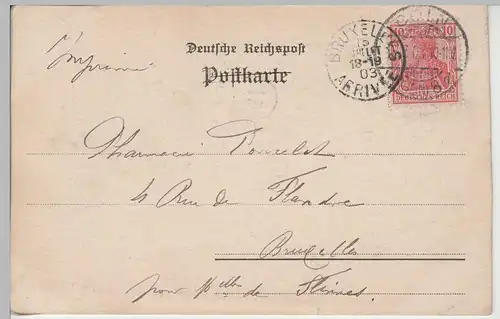 Deutsche Reichspost
Postkarte
Imprimé
BRUXELLES
JUILLET
18-19
03
ARRIVÉE
10 10
DEUTSCHES REICH
Pharmacie
4 Rue de Flandre
Bruxelles
pour de